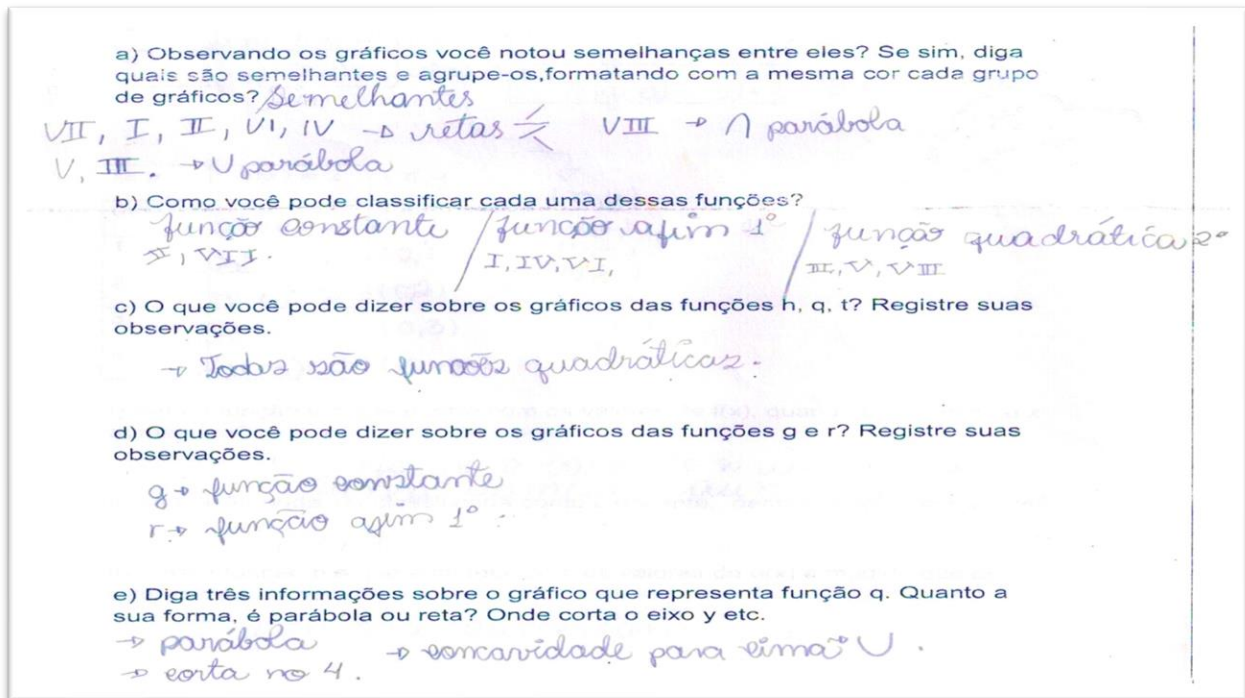 a) Observando os gráficos você notou semelhanças entre eles? Se sim, diga
quais são semelhantes e agrupe-os,formatando com a mesma cor cada grupo
de gráficos? Semelhantes
VII, I, II, VI, IV → retas VIII → ∩ parábola
V, III. → U parábola
b) Como você pode classificar cada uma dessas funções?
função constante / função afim 1° / função quadrática 2°
II, VII. I, IV, VI, III, V, VIII
c) O que você pode dizer sobre os gráficos das funções h, q, t? Registre suas
observações.
→ Todas são funções quadráticas.
d) O que você pode dizer sobre os gráficos das funções g e r? Registre suas
observações.
g → função constante
r → função afim 1°
e) Diga três informações sobre o gráfico que representa função q. Quanto a
sua forma, é parábola ou reta? Onde corta o eixo y etc.
→ parábola → concavidade para cima U.
→ corta no 4.